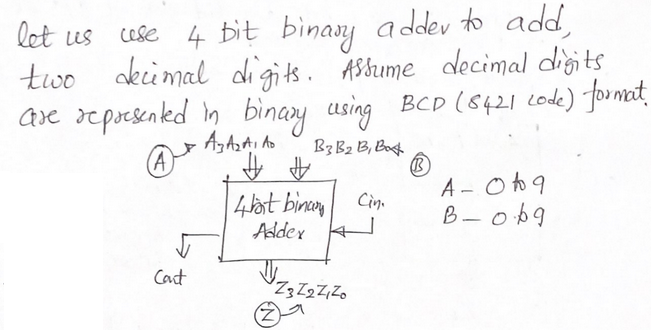 let us use 4 bit binary adder to add,
two decimal digits. Assume decimal digits
are represented in binary using BCD (8421 code) format.
A A3A2A1A0 B3B2B1B0 B
A - 0 to 9
4 bit binary Cin.
B - 0 to 9
Adder
Cout
Z3Z2Z1Z0
Z